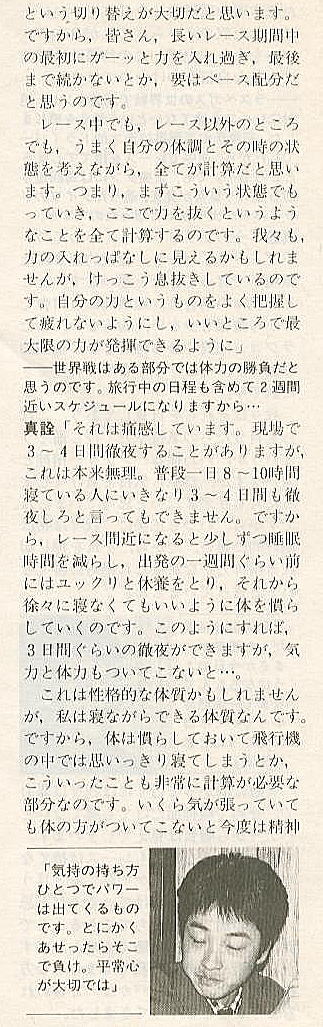 という切り替えが大切だと思います。
ですから，皆さん，長いレース期間中
の最初にガーッと力を入れ過ぎ，最後
まで続かないとか，要はペース配分だ
と思うのです。
　レース中でも，レース以外のところ
でも，うまく自分の体調とその時の状
態を考えながら，全てが計算だと思い
ます。つまり，まずこういう状態でも
っていき，ここで力を抜くというよう
なことを全て計算するのです。我々も，
力の入れっぱなしに見えるかもしれま
せんが，けっこう息抜きしているので
す。自分の力というものをよく把握し
て疲れないようにし，いいところで最
大限の力が発揮できるように」
――世界戦はある部分では体力の勝負だと
思うのです。旅行中の日程も含めて２週間
近いスケジュールになりますから…
真詮「それは痛感しています。現場で
３～４日間徹夜することがありますが，
これは本来無理。普段一日８～10時間
寝ている人にいきなり３～４日間も徹
夜しろと言ってもできません。ですか
ら，レース間近になると少しずつ睡眠
時間を減らし，出発の一週間ぐらい前
にはユックリと休養をとり，それから
徐々に寝なくてもいいように体を慣ら
していくのです。このようにすれば，
３日間ぐらいの徹夜ができますが，気
力と体力もついてこないと…。
　これは性格的な体質かもしれません
が，私は寝ながらできる体質なんです。
ですから，体は慣らしておいて飛行機
の中では思いっきり寝てしまうとか，
こういったことも非常に計算が必要な
部分なのです。いくら気が張っていて
も体の方がついてこないと今度は精神
「気持の持ち方
ひとつでパワー
は出てくるもの
です。とにかく
あせったらそこ
で負け。平常心
が大切では」